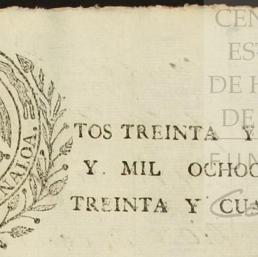 CEN
ES
DE H
DE
FUN
NALOA.
TOS TREINTA Y
Y MIL OCHOC
TREINTA Y CUA